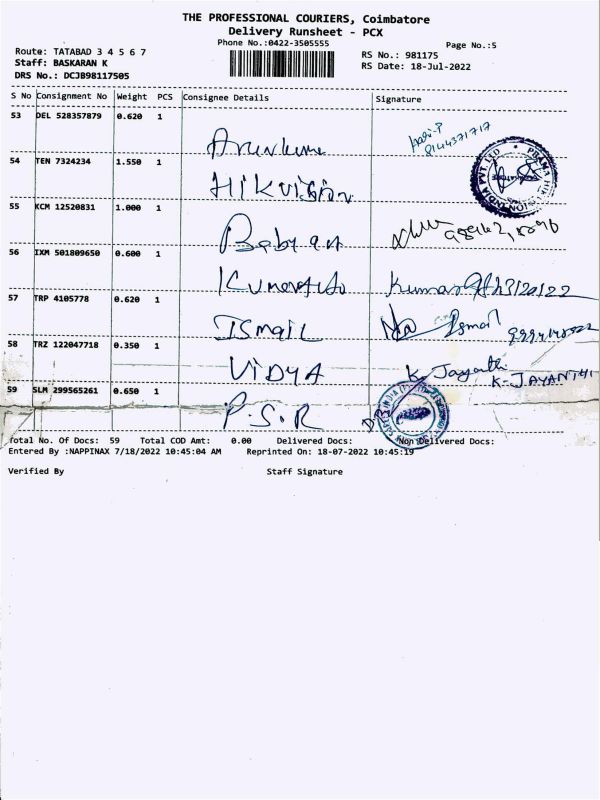 THE PROFESSIONAL COURIERS, Coimbatore
Delivery Runsheet - PCX
Phone No.:0422-3505555
Page No.:5
Route: TATABAD 3 4 5 6 7
Staff: BASKARAN K
DRS No.: DCJB98117505
RS No.: 981175
RS Date: 18-Jul-2022
S No Consignment No Weight PCS Consignee Details Signature
53 DEL 528357879 0.620 1
Hari-P
8144371717
Arunkumar
54 TEN 7324234 1.550 1
Hikvision
55 KCM 12520831 1.000 1
Baby
56 IXM 501809650 0.600 1
57 TRP 4105778 0.620 1
Ismail Ismail
58 TRZ 122047718 0.350 1
Vidya K. Jayanthi
K-JAYANTHI
59 SLM 299565261 0.650 1
P.S.R
Total No. Of Docs: 59 Total COD Amt: 0.00 Delivered Docs: Non Delivered Docs:
Entered By :NAPPINAX 7/18/2022 10:45:04 AM Reprinted On: 18-07-2022 10:45:19
Verified By Staff Signature